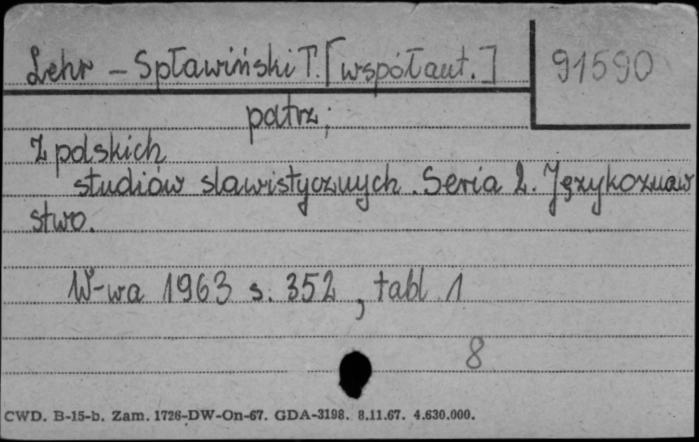 Lehr - Spławiński T. [współaut.]
91590
patrz;
Z polskich
studiów slawistycznych. Seria 2. Językoznaw
stwo.
W-wa 1963 s. 352, tabl 1
8
CWD. B-15-b. Zam. 1726-DW-On-67. GDA-3198. 8.11.67. 4.630.000.